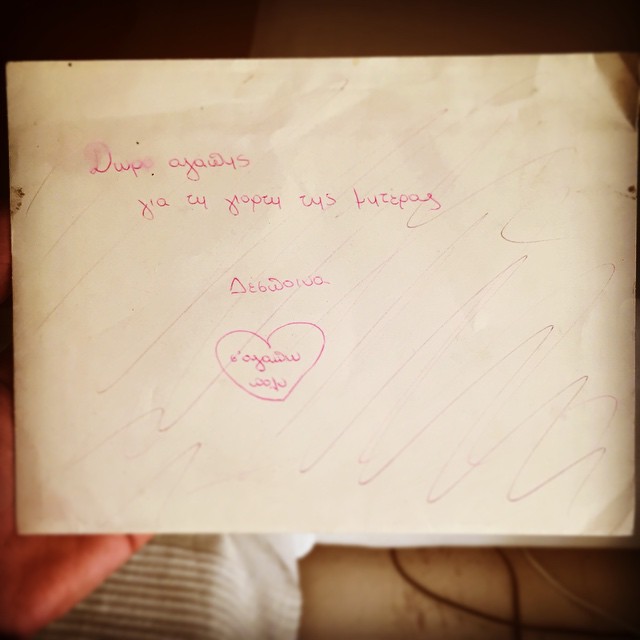 Δωρο αγαπης
για τη γιορτη της μητέρας
Δεσποινα
σ'αγαπω
πολυ